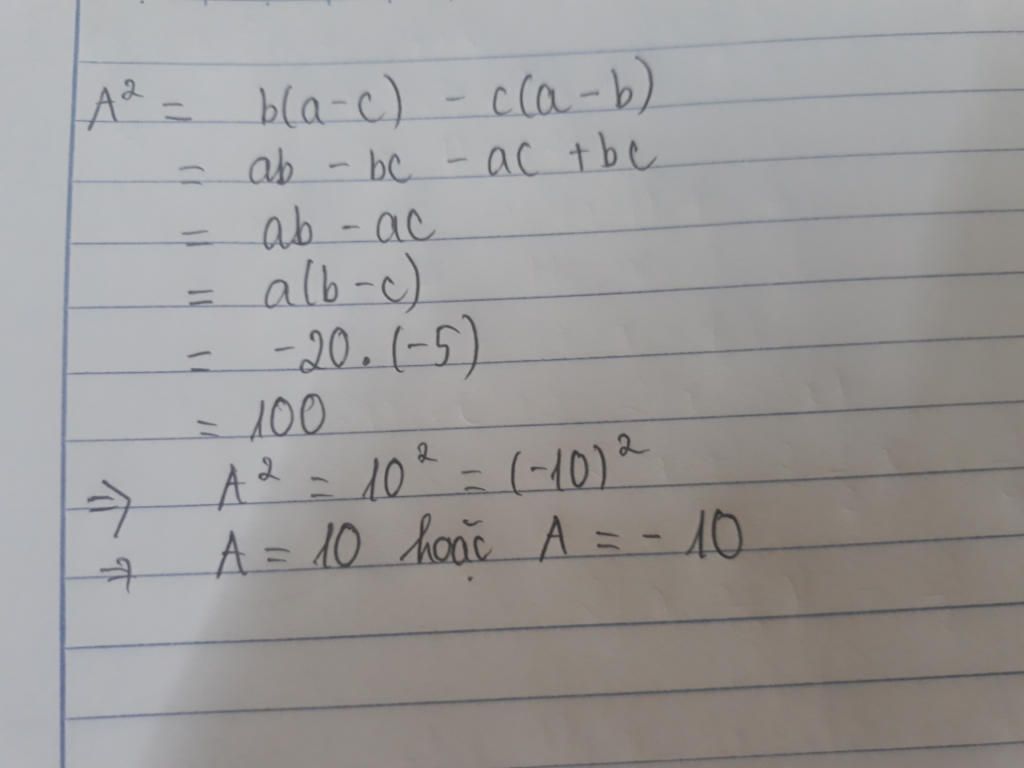 A² = b(a-c) - c(a-b)
= ab - bc - ac + bc
= ab - ac
= a(b-c)
= -20.(-5)
= 100
⇒ A² = 10² = (-10)²
⇒ A = 10 hoặc A = -10